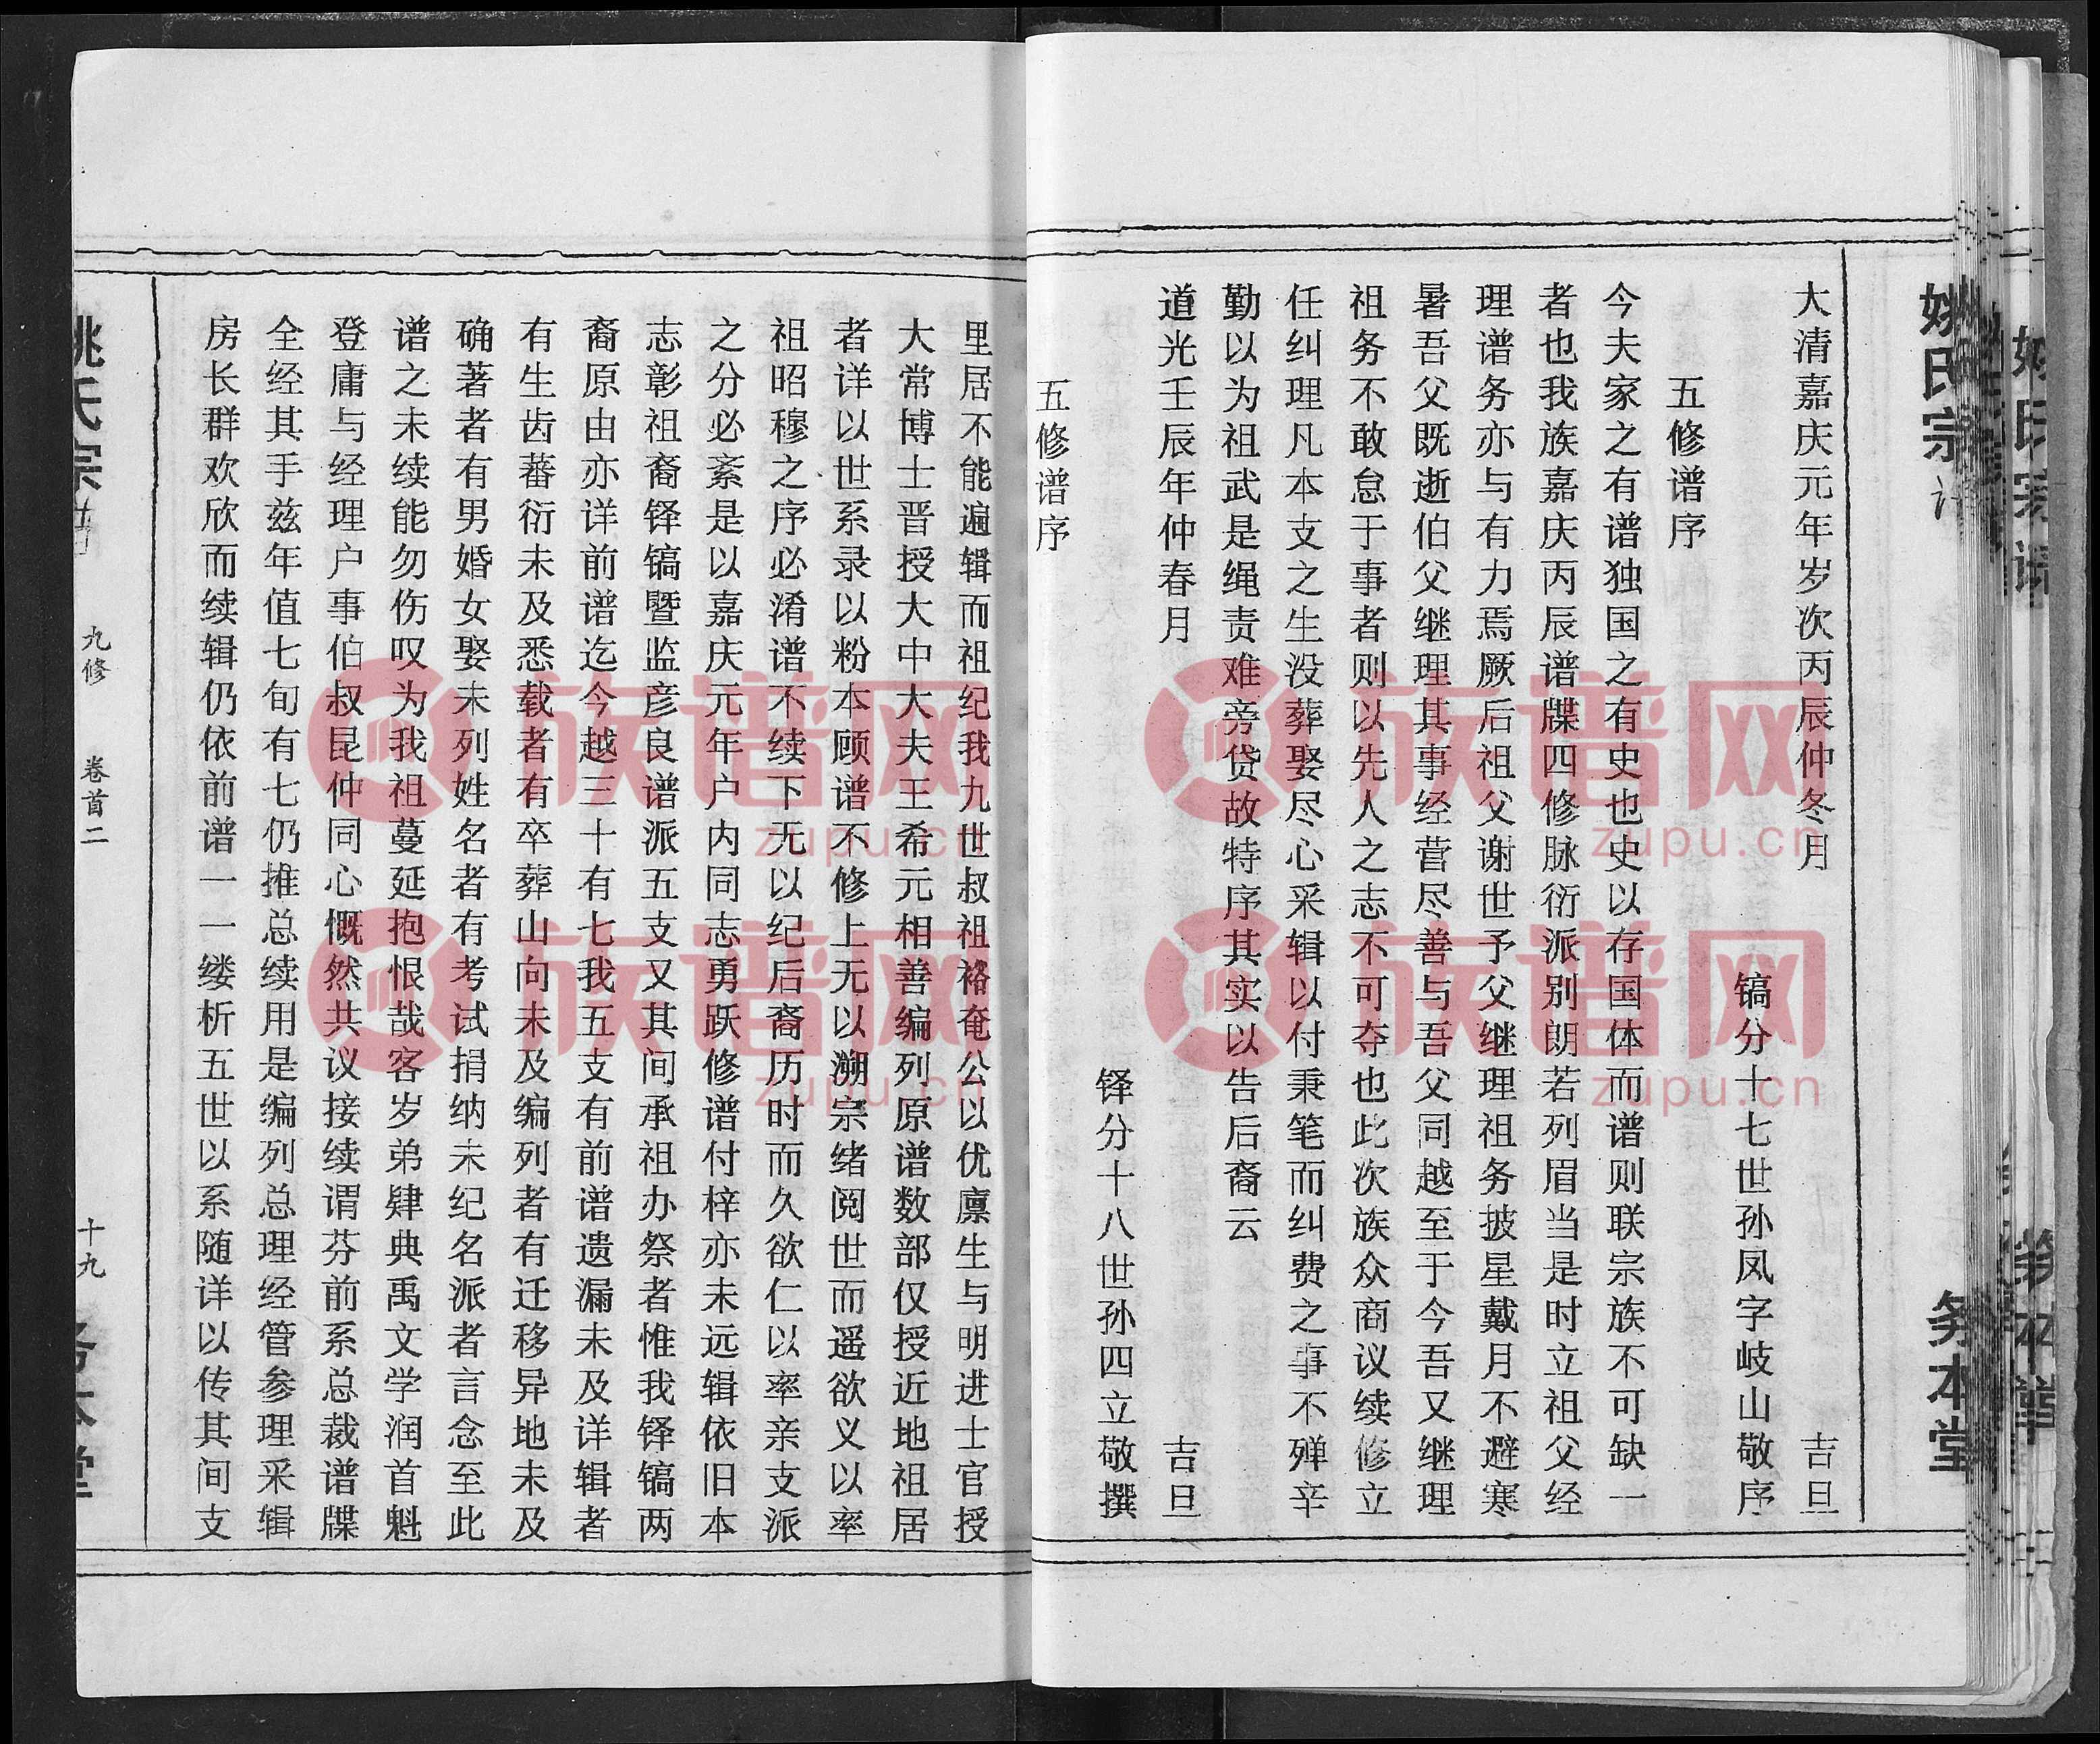 大清嘉庆元年岁次丙辰仲冬月 吉旦
镐分十七世孙凤字岐山敬序
五修谱序
今夫家之有谱独国之有史也史以存国体而谱则联宗族不可缺一
者也我族嘉庆丙辰谱牒四修脉衍派别朗若列眉当是时立祖父经
理谱务亦与有力焉厥后祖父谢世予父继理祖务披星戴月不避寒
暑吾父既逝伯父继理其事经营尽善与吾父同越至于今吾又继理
祖务不敢怠于事者则以先人之志不可夺也此次族众商议续修立
任纠理凡本支之生没葬娶尽心采辑以付秉笔而纠费之事不殚辛
勤以为祖武是绳责难旁贷故特序其实以告后裔云
道光壬辰年仲春月 吉旦
铎分十八世孙四立敬撰
五修谱序
里居不能遍辑而祖纪我九世叔祖裕奄公以优廪生与明进士官授
大常博士晋授大中大夫王希元相善编列原谱数部仅授近地祖居
者详以世系录以粉本顾谱不修上无以溯宗绪阅世而遥欲义以率
祖昭穆之序必淆谱不续下无以纪后裔历时而久欲仁以率亲支派
之分必紊是以嘉庆元年户内同志勇跃修谱付梓亦未远辑依旧本
志彰祖裔铎镐暨监彦良谱派五支又其间承祖办祭者惟我铎镐两
裔原由亦详前谱迄今越三十有七我五支有前谱遗漏未及详辑者
有生齿蕃衍未及悉载者有卒葬山向未及编列者有迁移异地未及
确著者有男婚女娶未列姓名者有考试捐纳未纪名派者言念至此
谱之未续能勿伤叹为我祖蔓延抱恨哉客岁弟肄典禹文学润首魁
登庸与经理户事伯叔昆仲同心慨然共议接续谓芬前系总裁谱牒
全经其手兹年值七旬有七仍推总续用是编列总理经管参理采辑
房长群欢欣而续辑仍依前谱一一缕析五世以系随详以传其间支
姚氏宗 九修 卷首二 十九 务本堂
姚氏宗 务本堂
姚氏宗谱 务本堂
族谱网 zupu.cn
族谱网 zupu.cn
族谱网 zupu.cn
族谱网 zupu.cn